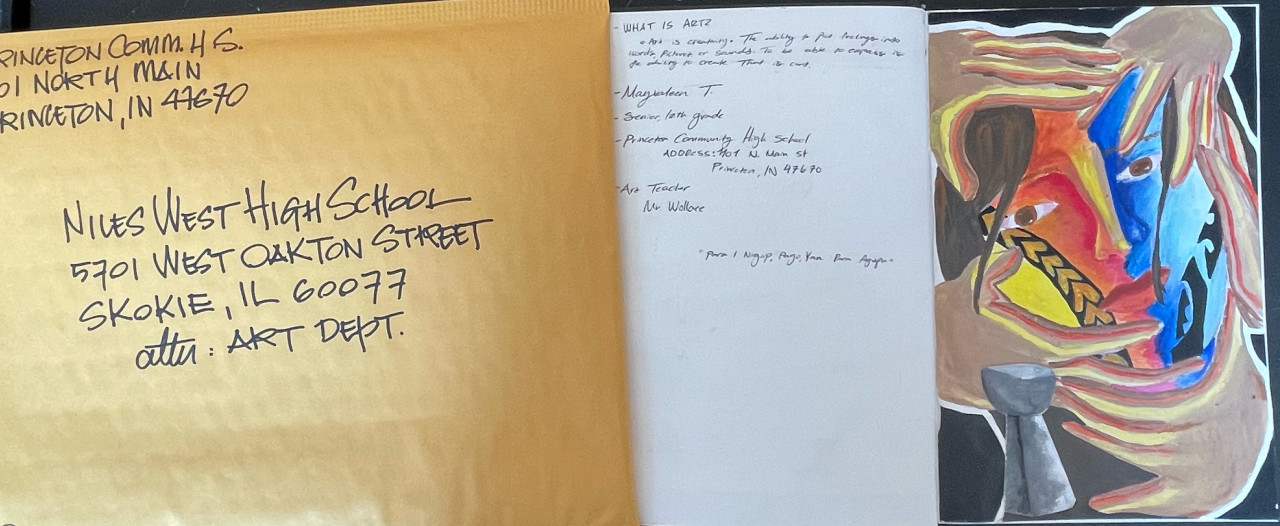 RINCETON COMM. H S.
01 NORTH MAIN
RINCETON, IN 47670
NILES WEST HIGH SCHOOL
5701 WEST OAKTON STREET
SKOKIE, IL 60077
attn: ART DEPT.
- WHAT IS ART?
Art is creativity. The ability to put feelings into
words, pictures or sounds. To be able to express is
the ability to create. That is art.
- Magdaleen T.
- Senior, 12th grade
- Princeton Community High School
ADDRESS: 1101 N. Main st
Princeton, IN 47670
- Art Teacher
Mr. Wallace
"Para I